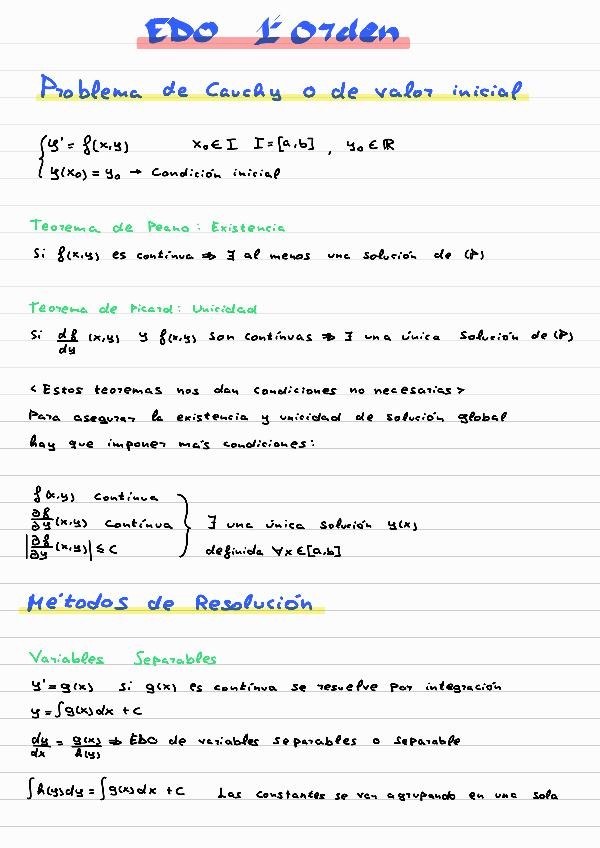 EDO 1º Orden
Problema de Cauchy o de valor inicial
{ y' = f(x,y) x₀ ∈ I I = [a,b] , y₀ ∈ ℝ
y(x₀) = y₀ → Condición inicial
Teorema de Peano: Existencia
Si f(x,y) es continua ⇒ ∃ al menos una solución de (P)
Teorema de Picard: Unicidad
Si df/dy (x,y) y f(x,y) son continuas ⇒ ∃ una única solución de (P)
<Estos teoremas nos dan condiciones no necesarias>
Para asegurar la existencia y unicidad de solución global
hay que imponer más condiciones:
f(x,y) continua
∂f/∂y (x,y) continua } ∃ una única solución y(x)
|∂f/∂y (x,y)| ≤ C definida ∀x ∈ [a,b]
Métodos de Resolución
Variables Separables
y' = g(x) si g(x) es continua se resuelve por integración
y = ∫g(x)dx + C
dy/dx = g(x)/h(y) ⇒ EDO de variables separables o separable
∫h(y)dy = ∫g(x)dx + C Las constantes se van agrupando en una sola